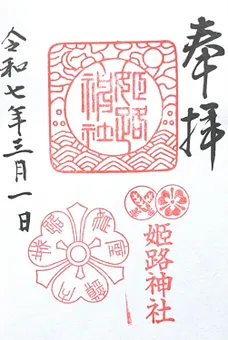 奉拝
姫路神社
姫路神社
令和七年三月一日